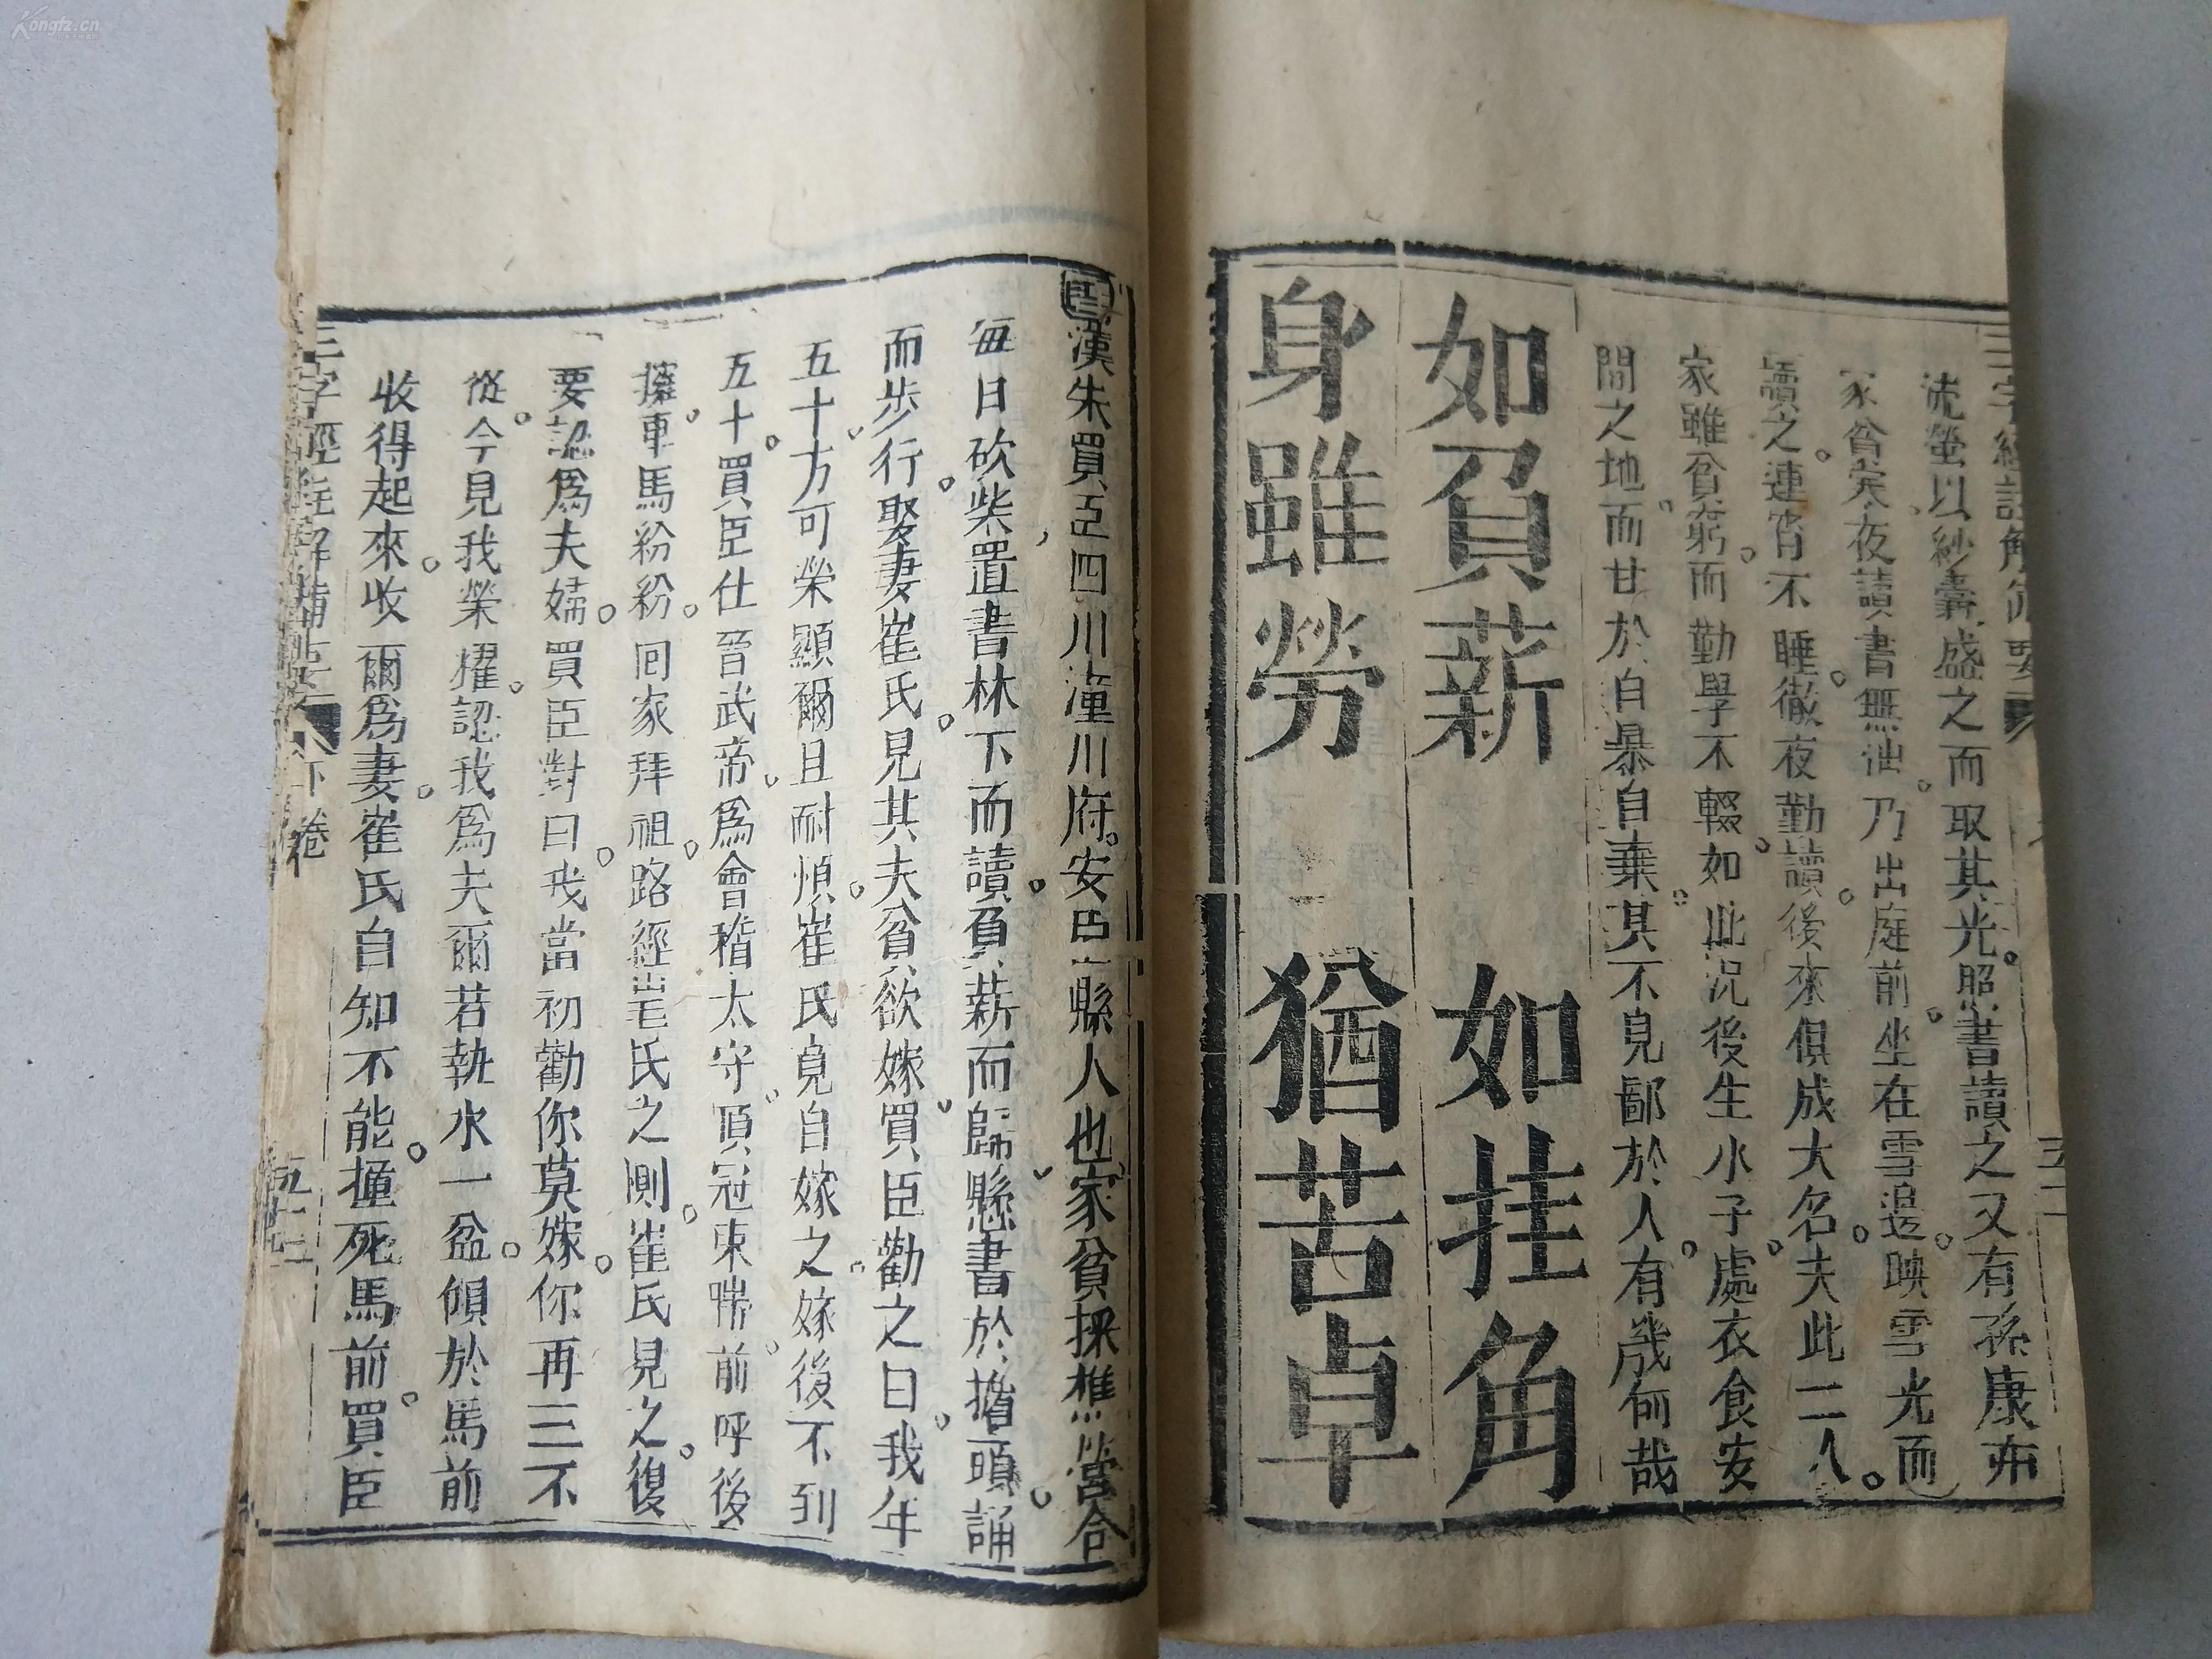 Kongfz.cn
流螢以紗囊盛之而取其光照書讀之又有孫康亦
家貧矣夜讀書無油乃出庭前坐在雪邊映雪光而
讀之連宵不睡徹夜勤讀後來俱成大名夫此二人
家雖貧窮而勤學不輟如此况後生小子處衣食安
閒之地而甘於自暴自棄其不見鄙於人有幾何哉
如負薪 如挂角
身雖勞 猶苦卓
漢朱買臣四川潼川府安縣人也家貧採樵營合
每日砍柴置書林下而讀負薪而歸懸書於擔頭誦
而步行娶妻崔氏見其夫貧欲嫁買臣勸之曰我年
五十方可榮顯爾且耐煩崔氏竟自嫁之嫁後不到
五十買臣仕晉武帝爲會稽太守頂冠束帶前呼後
擁車馬紛紛回家拜祖路經崔氏之側崔氏見之復
要認爲夫婦買臣對曰我當初勸你莫嫁你再三不
從今見我榮耀認我爲夫爾若執水一盆傾於馬前
收得起來收爾爲妻崔氏自知不能撞死馬前買臣
三字經註解備要 下卷 五十二